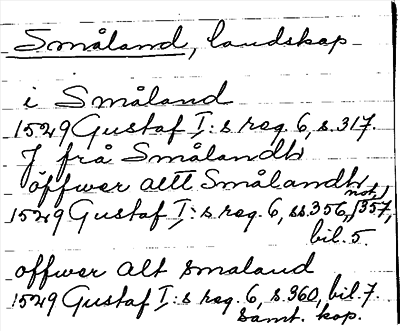 Småland, landskap
i Småland
1529 Gustaf I:s reg. 6, s. 317.
J frå Smålandh
öffwer altt Smålandh
1529 Gustaf I:s reg. 6, ss. 356, 357, not,
bil. 5.
offwer alt smaland
1529 Gustaf I:s reg. 6, s. 360, bil. 7.
Samt. kop.